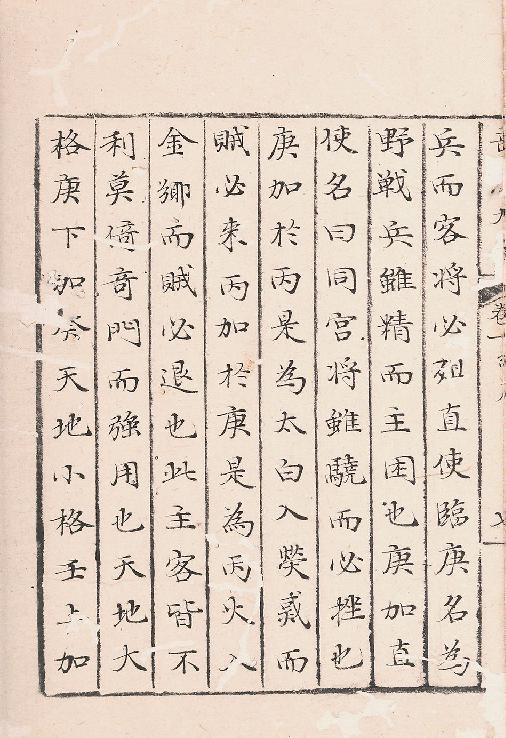 兵而客将必殂直使臨庚名為
野戦兵雖精而主困也庚加直
使名曰同宮将雖驍而必挫也
庚加於丙是為太白入熒惑而
賊必来丙加於庚是為丙火入
金鄉而賊必退也此主客皆不
利莫倚竒門而強用也天地大
格庚下加癸天地小格壬上加